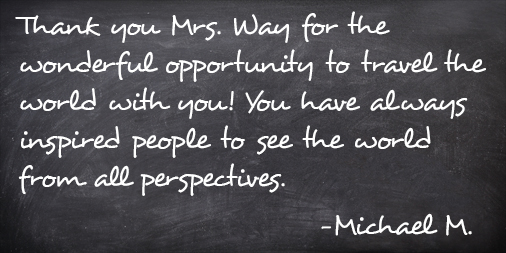 Thank you Mrs. Way for the
wonderful opportunity to travel the
world with you! You have always
inspired people to see the world
from all perspectives.
-Michael M.